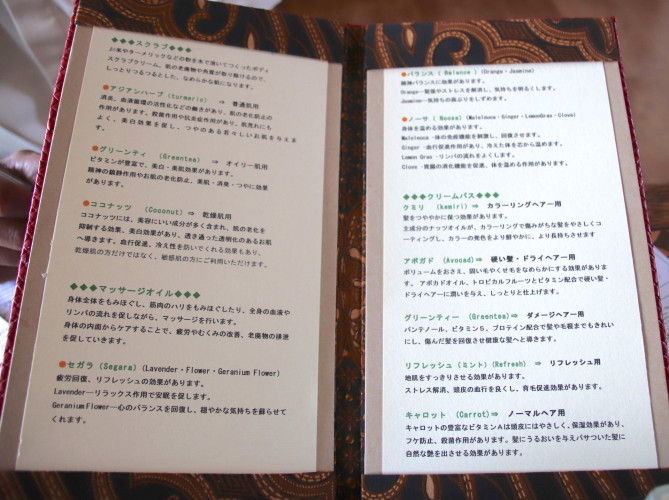 ◆◆◆スクラブ◆◆◆
お米やターメリックなどの粉を水で溶いてつくったボディ
スクラブクリーム。肌の老廃物や角質が取り除けるので、
しっとりつるつるとした、なめらかな肌になります。
●アジアンハーブ (turmeris) ⇒ 普通肌用
消炎、血液循環の活性化などの働きがあり、肌の老化防止の
作用があります。殺菌作用や抗炎症作用があり、肌荒れにも
よく、美白効果を促し、つやのある若々しいお肌を与えま
す。
●グリーンティ (Greentea) ⇒ オイリー肌用
ビタミンが豊富で、美白・美肌効果があります。
精神の鎮静作用やお肌の老化防止、美肌・消臭・つやに効果
があります。
●ココナッツ (Coconut) ⇒ 乾燥肌用
ココナッツには、美容にいい成分が多く含まれ、肌の老化を
抑制する効果、美白効果があり、透き通った透明化のあるお肌
へ導きます。血行促進、冷え性を防いでくれる効果もあり、
乾燥肌の方だけではなく、敏感肌の方にご利用いただけます。
◆◆◆マッサージオイル◆◆◆
身体全体をもみほぐし、筋肉のハリをもみほぐしたり、全身の血液や
リンパの流れを促しながら、マッサージを行います。
身体の内面からケアすることで、疲労やむくみの改善、老廃物の排泄
を促していきます。
●セガラ (Segara) (Lavender・Flower・Geranium Flower)
疲労回復、リフレッシュの効果があります。
Lavender―リラックス作用で安眠を促します。
Geranium Flower―心のバランスを回復し、穏やかな気持ちを蘇らせて
くれます。
●バランス ( Balance ) (Orange・Jasmine)
精神バランスに効果があります。
Orange―緊張やストレスを解消し、気持ちを明るくします。
Jasmine―気持ちの高ぶりをしずめます。
●ノーサ ( Noosa) (Maleleuca・Ginger・LemonGras・Clove)
身体を温める効果があります。
Maleleuca・体の免疫機能を刺激し、回復させます。
Ginger・血行促進作用があり、冷えた体を芯から温めます。
Lemon Gras・リンパの流れをよくします。
Clove・胃腸の消化機能を促進、体を温める作用があります。
◆◆◆クリームバス◆◆◆
クミリ (kemiri) ⇒ カラーリングヘアー用
髪をつややかに保つ効果があります。
主成分のナッツオイルが、カラーリングで傷みがちな髪をやさしくコ
ーティングし、カラーの発色をより鮮やかに、より長持ちさせます
アボガド (Avocad)⇒ 硬い髪・ドライヘアー用
ボリュームをおさえ、固い毛やくせ毛をなめらかにする効果がありま
す。 アボカドオイル、トロピカルフルーツとビタミン配合で硬い髪・
ドライヘアーに潤いを与え、しっとりと仕上げます。
グリーンティー (Greentea)⇒ ダメージヘアー用
パンテノール、ビタミン５、プロテイン配合で髪や毛根までもきれい
にし、傷んだ髪を回復させ健康な髪へと導きます。
リフレッシュ (ミント) (Refresh) ⇒ リフレッシュ用
地肌をすっきりさせる効果があります。
ストレス解消、頭皮の血行を良くし、育毛促進効果があります。
キャロット (Carrot)⇒ ノーマルヘアー用
キャロットの豊富なビタミンAは頭皮にはやさしく、保湿効果があり、
フケ防止、殺菌作用があります。髪にうるおいを与えパサついた髪に
自然な艶を出させる効果があります。